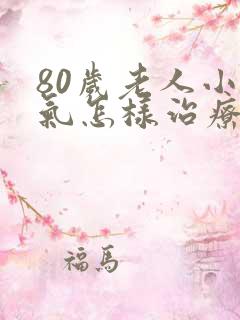 80歲老人小
氣怎樣治療
福馬